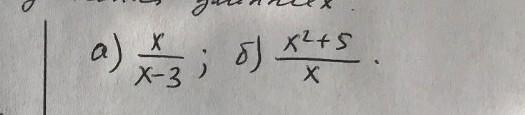 а) x/(x-3) ; б) (x²+5)/x .